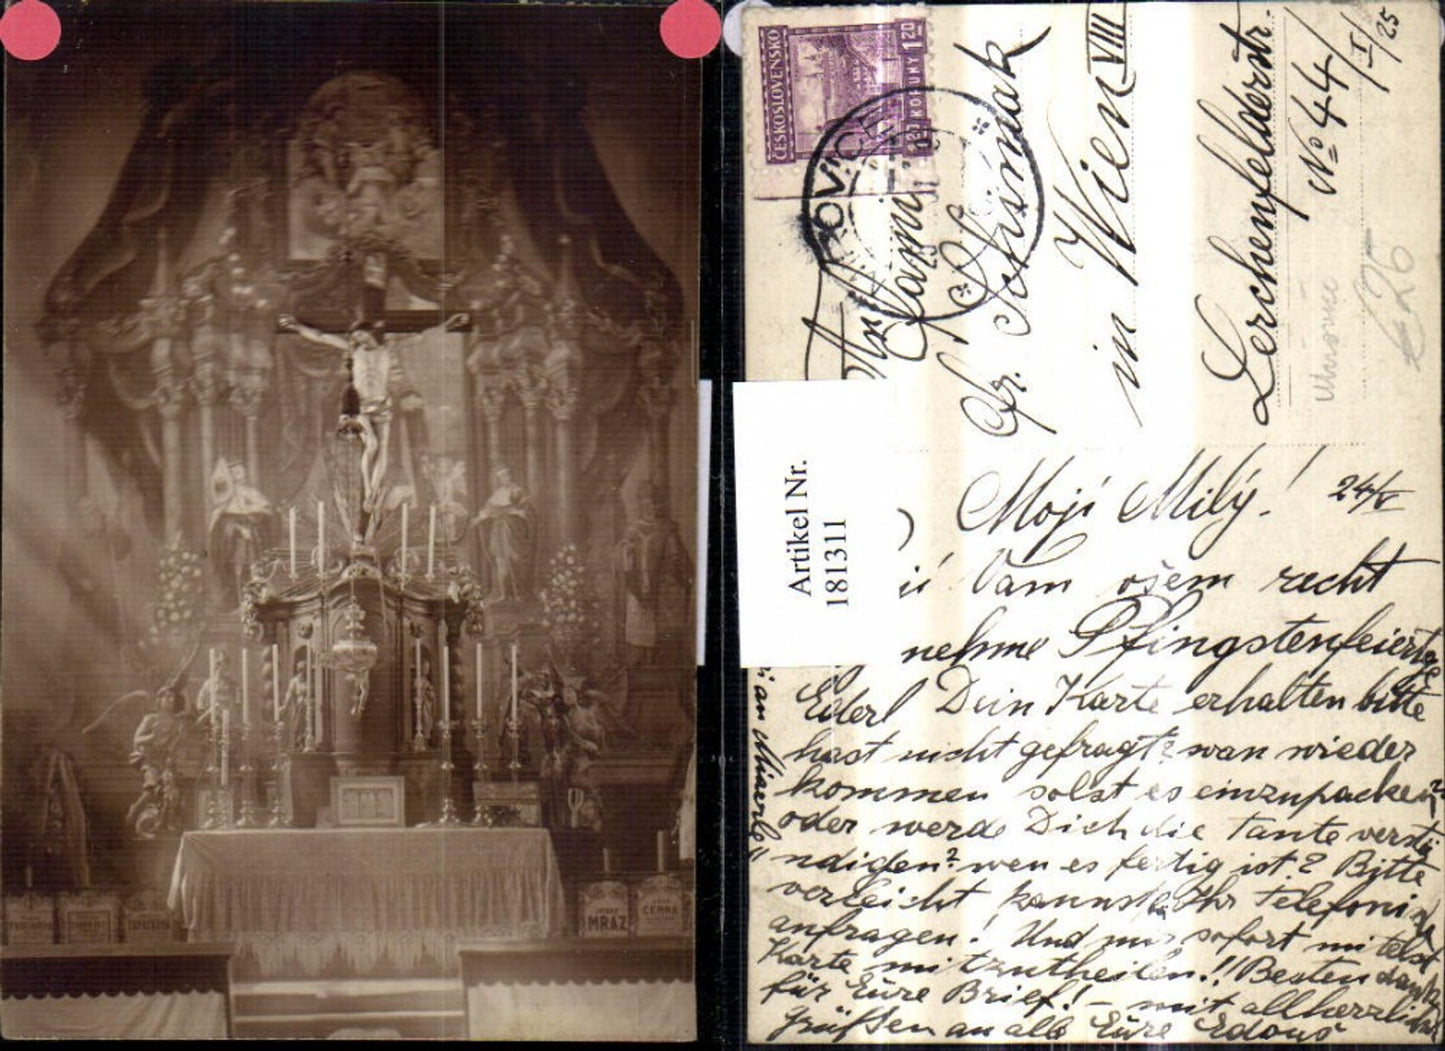 MRAZ
CERNA
ČESKOSLOVENSKO
1.20 KORUNY 1.20
Artikel Nr.
181311
Fr. Schimak
in Wien VIII
Lerchenfelderstr.
No 44/I/25
€25
Moji Milý! 24/V
Vam ošem recht
nehme Pfingstenfeiertge
Ederl Dein Karte erhalten bitte
hast nicht gefragt? wan wieder
kommen solst es einzupacken?
oder werde Dich die Tante verstä
ndigen? wen es fertig ist? Bitte
verleicht kannst Ihr Telefoni
anfragen! Und mir sofort mitelst
Karte mitzutheilen!! Besten dank
für Eure Brief! – mit allherzlich
Grüßen an alle Eure